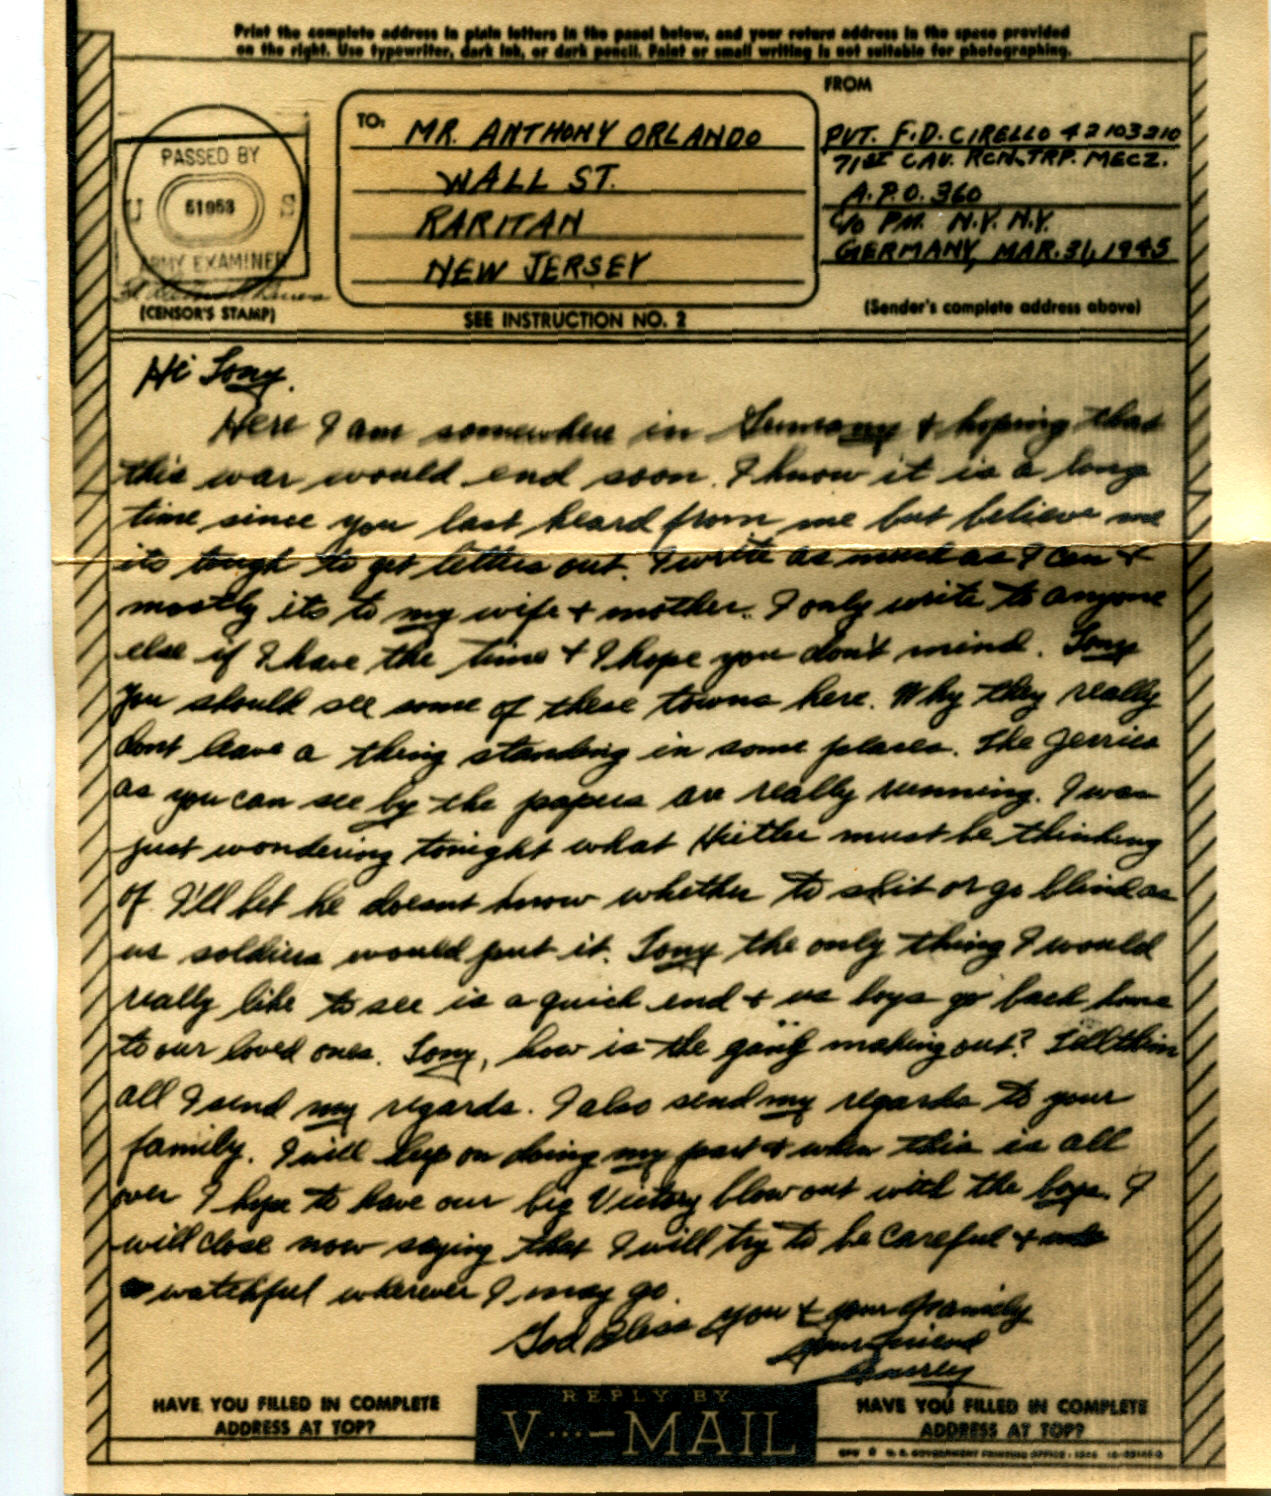 Print the complete address in plain letters in the panel below, and your return address in the space provided
on the right. Use typewriter, dark ink, or dark pencil. Faint or small writing is not suitable for photographing.
FROM
TO:
MR. ANTHONY ORLANDO
WALL ST.
RARITAN
NEW JERSEY
PVT. F.D. CIRELLO 42103210
71ST CAV. RCN. TRP. MECZ.
A.P.O. 360
C/O P.M. N.Y. N.Y.
GERMANY, MAR. 31, 1945
PASSED BY
U S
51053
ARMY EXAMINER
(CENSOR'S STAMP)
SEE INSTRUCTION NO. 2
(Sender's complete address above)
Hi Tony.
Here I am somewhere in Germany & hoping that
this war would end soon. I know it is a long
time since you last heard from me but believe me
its tough to get letters out. I write as much as I can &
mostly its to my wife & mother. I only write to anyone
else if I have the time & I hope you don't mind. Tony
you should see some of these towns here. Why they really
dont leave a thing standing in some places. The Jerries
as you can see by the papers are really running. I was
just wondering tonight what Hitler must be thinking
of. I'll bet he doesnt know whether to shit or go blind as
us soldiers would put it. Tony the only thing I would
really like to see is a quick end & us boys go back home
to our loved ones. Tony, how is the gang making out? Tell them
all I send my regards. I also send my regards to your
family. I will keep on doing my part & when this is all
over I hope to have our big Victory blow out with the boys. I
will close now saying that I will try to be careful &
watchful wherever I may go.
God Bless you & your family
Your friend
HAVE YOU FILLED IN COMPLETE
ADDRESS AT TOP?
REPLY BY
V···—MAIL
HAVE YOU FILLED IN COMPLETE
ADDRESS AT TOP?
U. S. GOVERNMENT PRINTING OFFICE